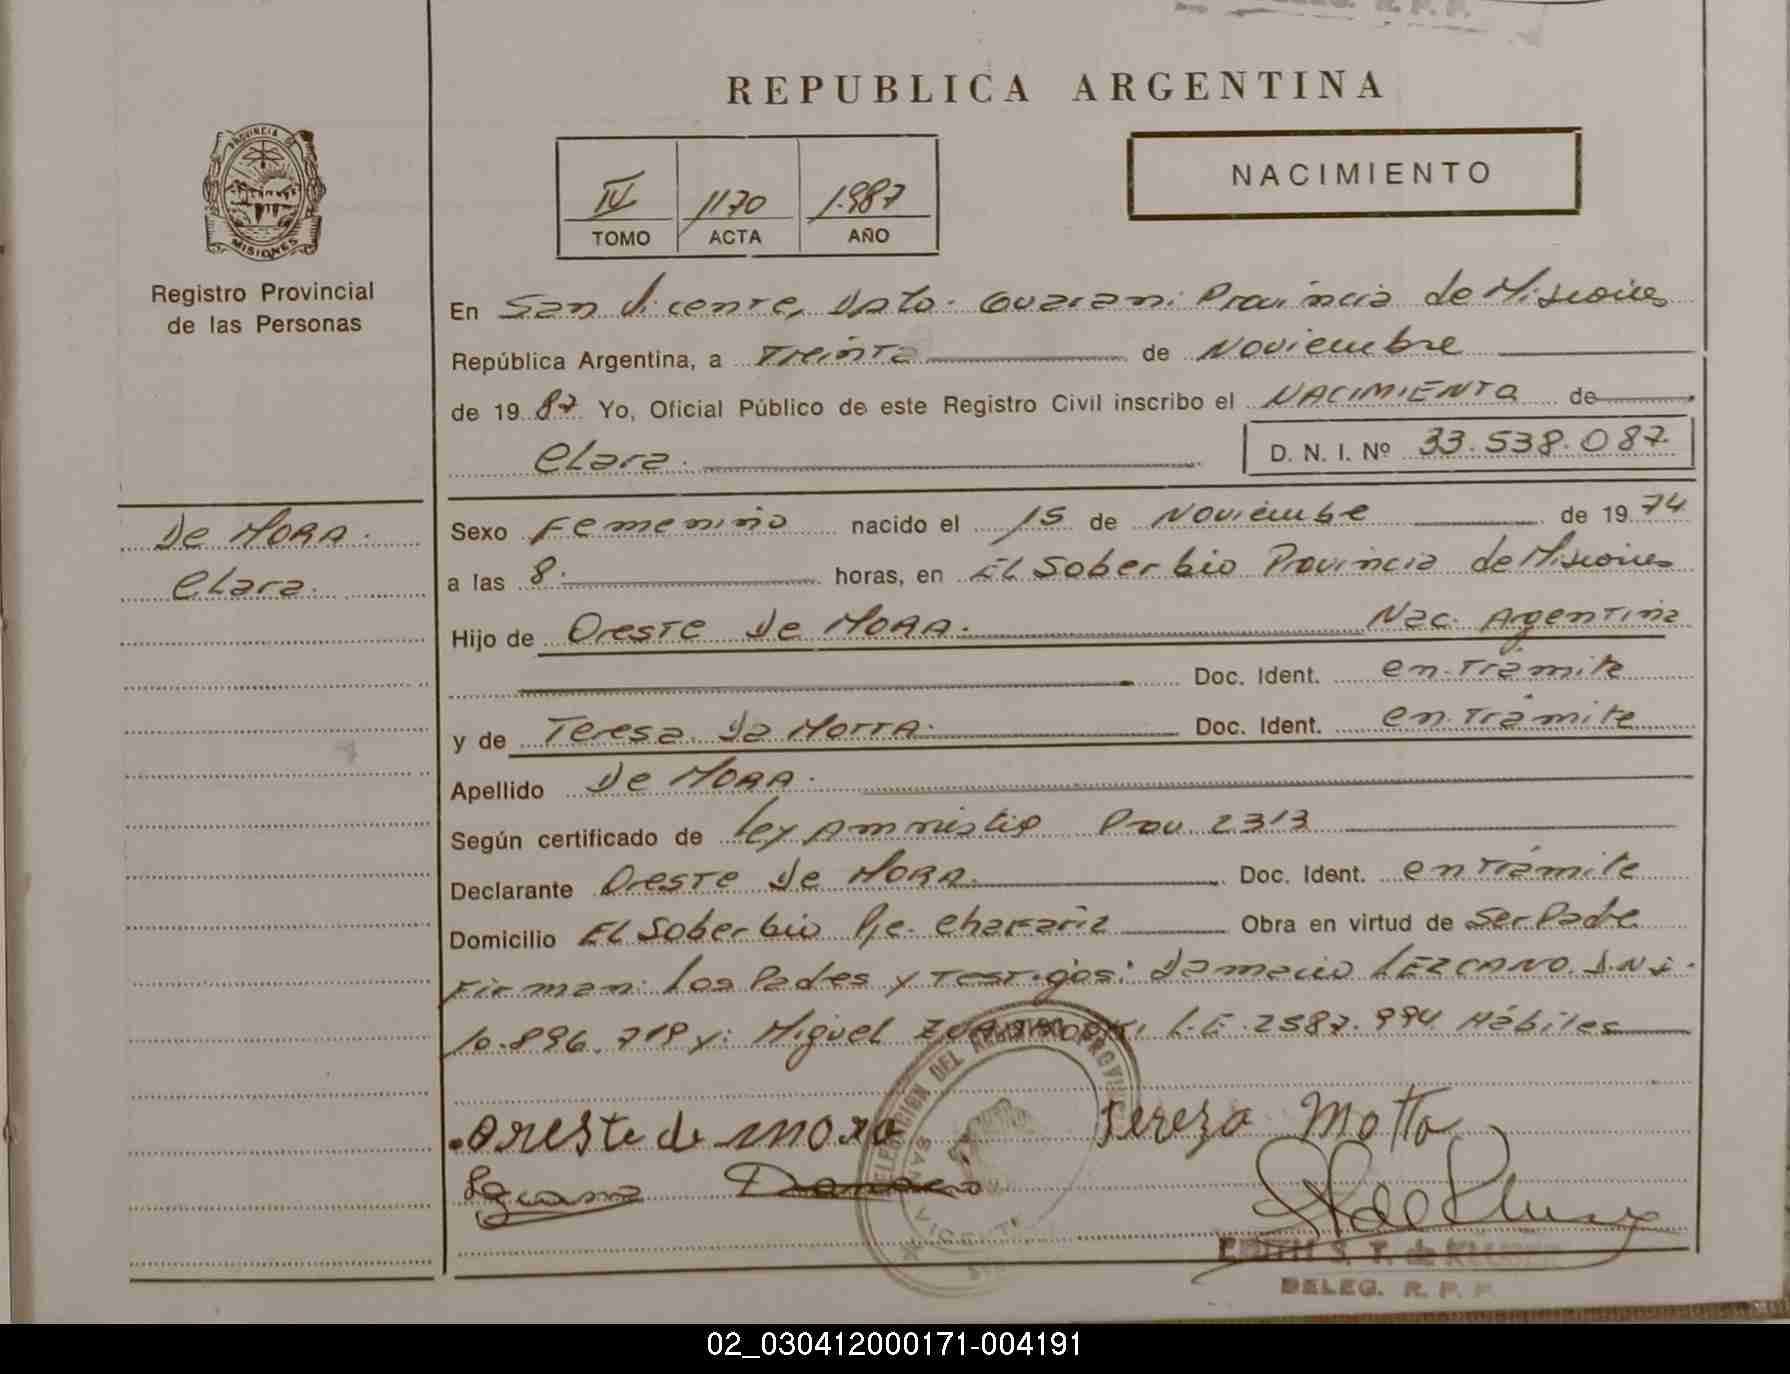 DELEG. R. P. P.
REPUBLICA ARGENTINA
PROVINCIA DE
MISIONES
Registro Provincial
de las Personas
IV 1170 1.987
TOMO ACTA AÑO
NACIMIENTO
En San Vicente, Dpto. Guarani Provincia de Misiones
República Argentina, a Treinta de Noviembre
de 19 87 Yo, Oficial Público de este Registro Civil inscribo el NACIMIENTO de
Clara. D. N. I. Nº 33.538.087
De MORA.
Clara.
Sexo Femenino nacido el 15 de Noviembre de 19 74
a las 8. horas, en El Soberbio Provincia de Misiones
Hijo de Oreste De MORA. Nac. Argentina
Doc. Ident. en tramite
y de Teresa Da MOTTA. Doc. Ident. en tramite
Apellido De MORA.
Según certificado de Ley Amnistia Prov 2313
Declarante Oreste De MORA. Doc. Ident. en trámite
Domicilio El Soberbio Pje. Chafariz Obra en virtud de Ser Padre
Firman: Los Padres y Testigos: Damacio LEZCANO. D.N.I.
10.896.719 y: Miguel L.E. 2587.994 Hábiles
DELEGACION DEL REGISTRO PROVINCIAL
SAN VICENTE
oreste de mora Tereza Motta
DELEG. R. P. P.
02_030412000171-004191